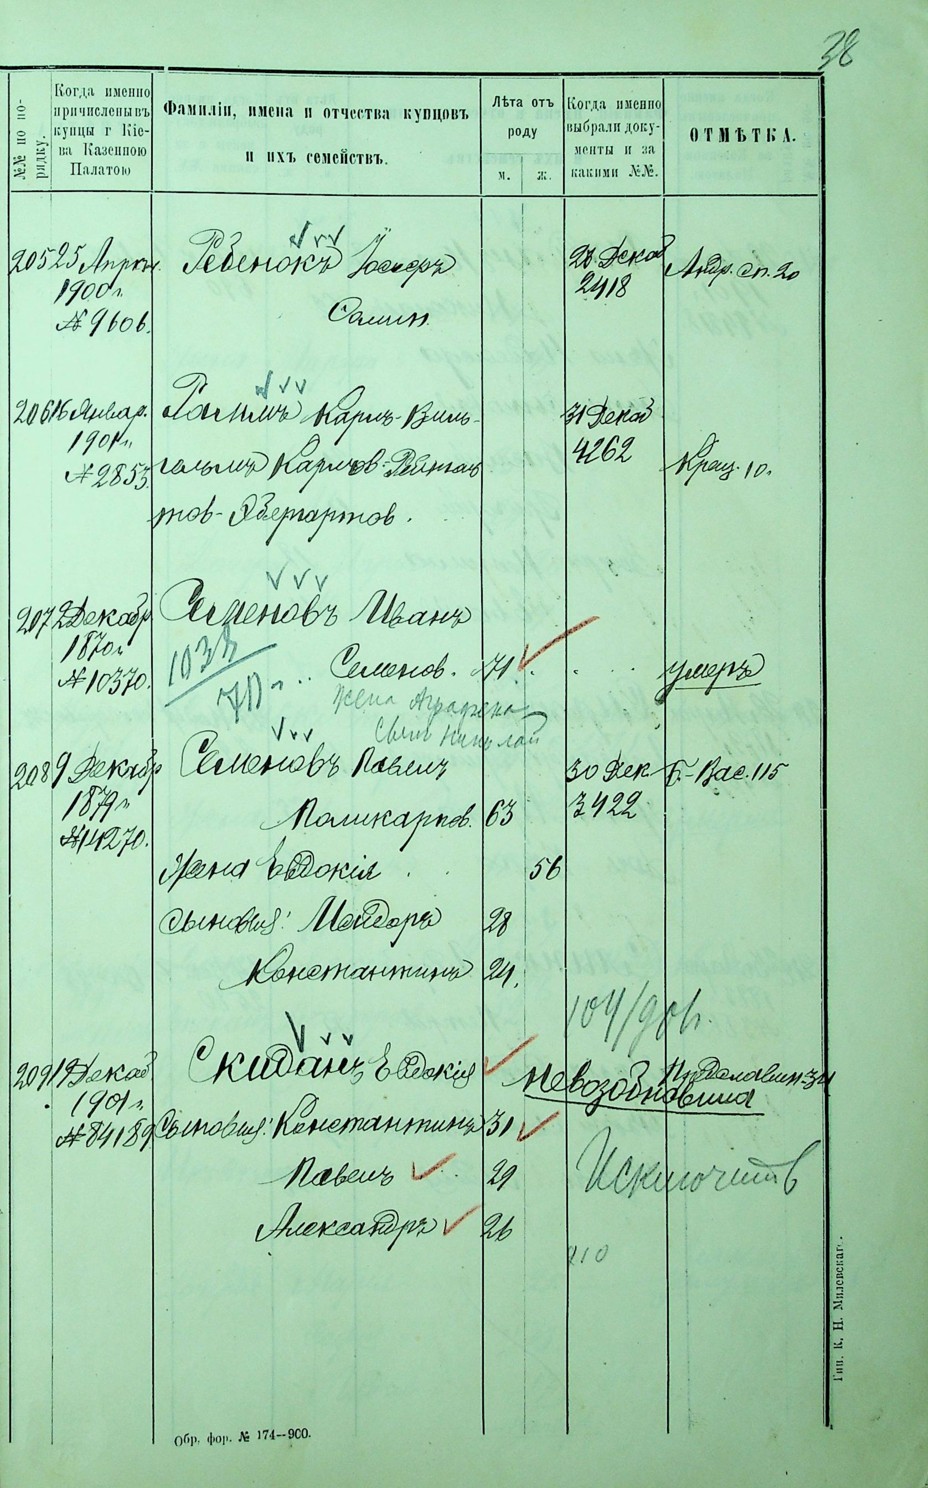 38
№№ по по-
рядку.
Когда именно
причислены въ
купцы г Кіе-
ва Казенною
Палатою
Фамиліи, имена и отчества купцовъ
и ихъ семействъ.
Лѣта отъ
роду
м. ж.
Когда именно
выбрали доку-
менты и за
какими №№.
ОТМѢТКА.
205 25 Апрѣл. Ребенокъ Іосифъ 23 Декаб Андр. сп. 20
1900 г. 2418
№ 9606. Самиил
206 16 Январ. Карлъ-Виль- 31 Декаб
1901 г. 4262
№ 2853. гельмъ Карлов- Крещ. 10.
тов-Эбергартов.
207 2 Декабр Семеновъ Иванъ
1870 г
№ 10370. Семенов. 71. умеръ
1033
жена Аграфена
сынъ Николай
208 9 Декабр Семеновъ Павелъ 30 Дек Б.-Вас. 115
1879 г 3422
№ 14270. Поликарпов. 63
Жена Евдокія 56
Сыновья: Исидоръ 28
Константинъ 24.
104/901.
209 19 Декаб Скиданъ Евдокія
невозобновила
1901 г.
№ 84189 Сыновья: Константинъ 31
Павелъ 29 Исключить
Александръ 26
210
Тип. К. Н. Милевскаг.
Обр. фор. № 174—900.